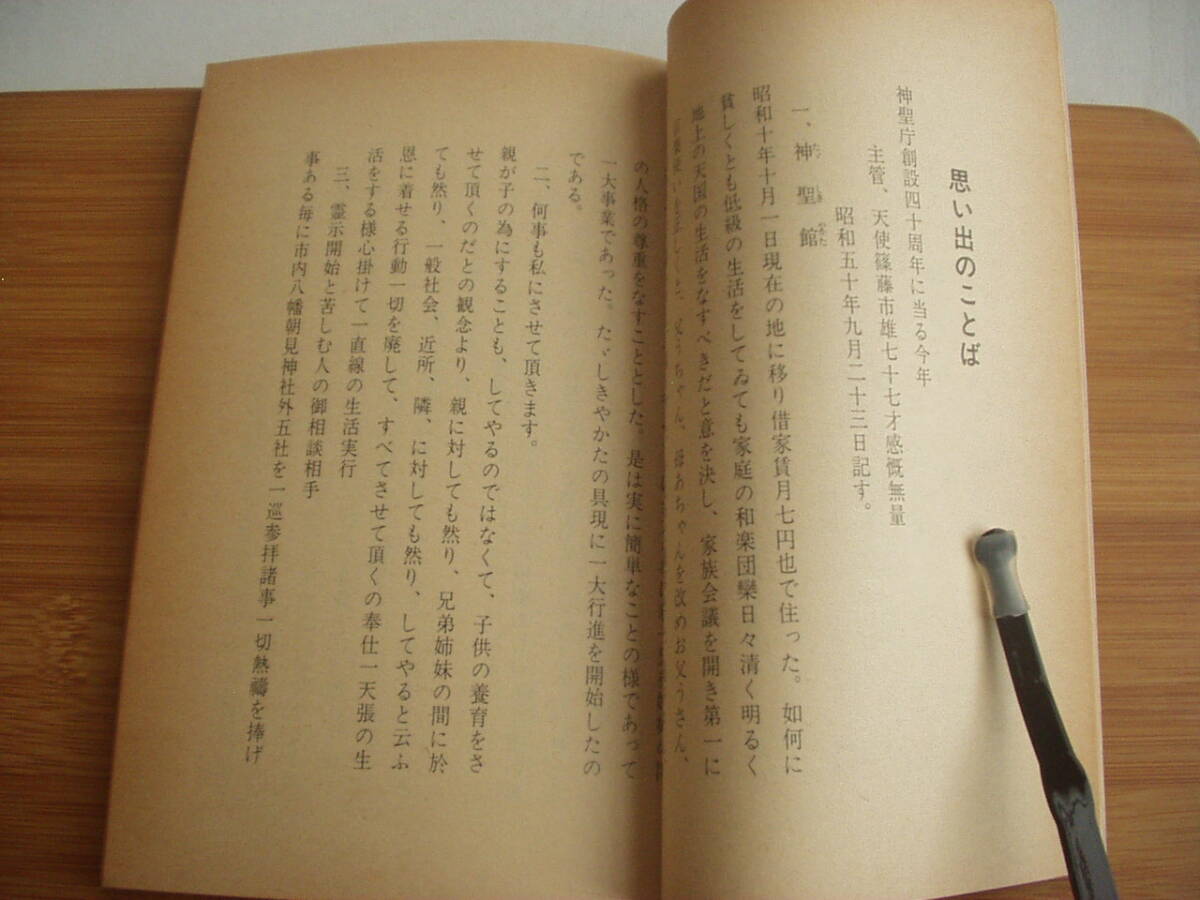 思い出のことば
神聖庁創設四十周年に当る今年
主管、天使篠藤市雄七十七才感慨無量
昭和五十年九月二十三日記す。
一、神聖館
昭和十年十月一日現在の地に移り借家賃月七円也で住った。如何に
貧しくとも低級の生活をしてゐても家庭の和楽団欒日々清く明るく
地上の天国の生活をなすべきだと意を決し、家族会議を開き第一に
父うちゃん、母あちゃんを改めお父うさん、
の人格の尊重をなすこととした。是は実に簡単なことの様であって
一大事業であった。たゞしきやかたの具現に一大行進を開始したの
である。
二、何事も私にさせて頂きます。
親が子の為にすることも、してやるのではなくて、子供の養育をさ
せて頂くのだとの観念より、親に対しても然り、兄弟姉妹の間に於
ても然り、一般社会、近所、隣、に対しても然り、してやると云ふ
恩に着せる行動一切を廃して、すべてさせて頂くの奉仕一天張の生
活をする様心掛けて一直線の生活実行
三、霊示開始と苦しむ人の御相談相手
事ある毎に市内八幡朝見神社外五社を一巡参拝諸事一切熱禱を捧げ